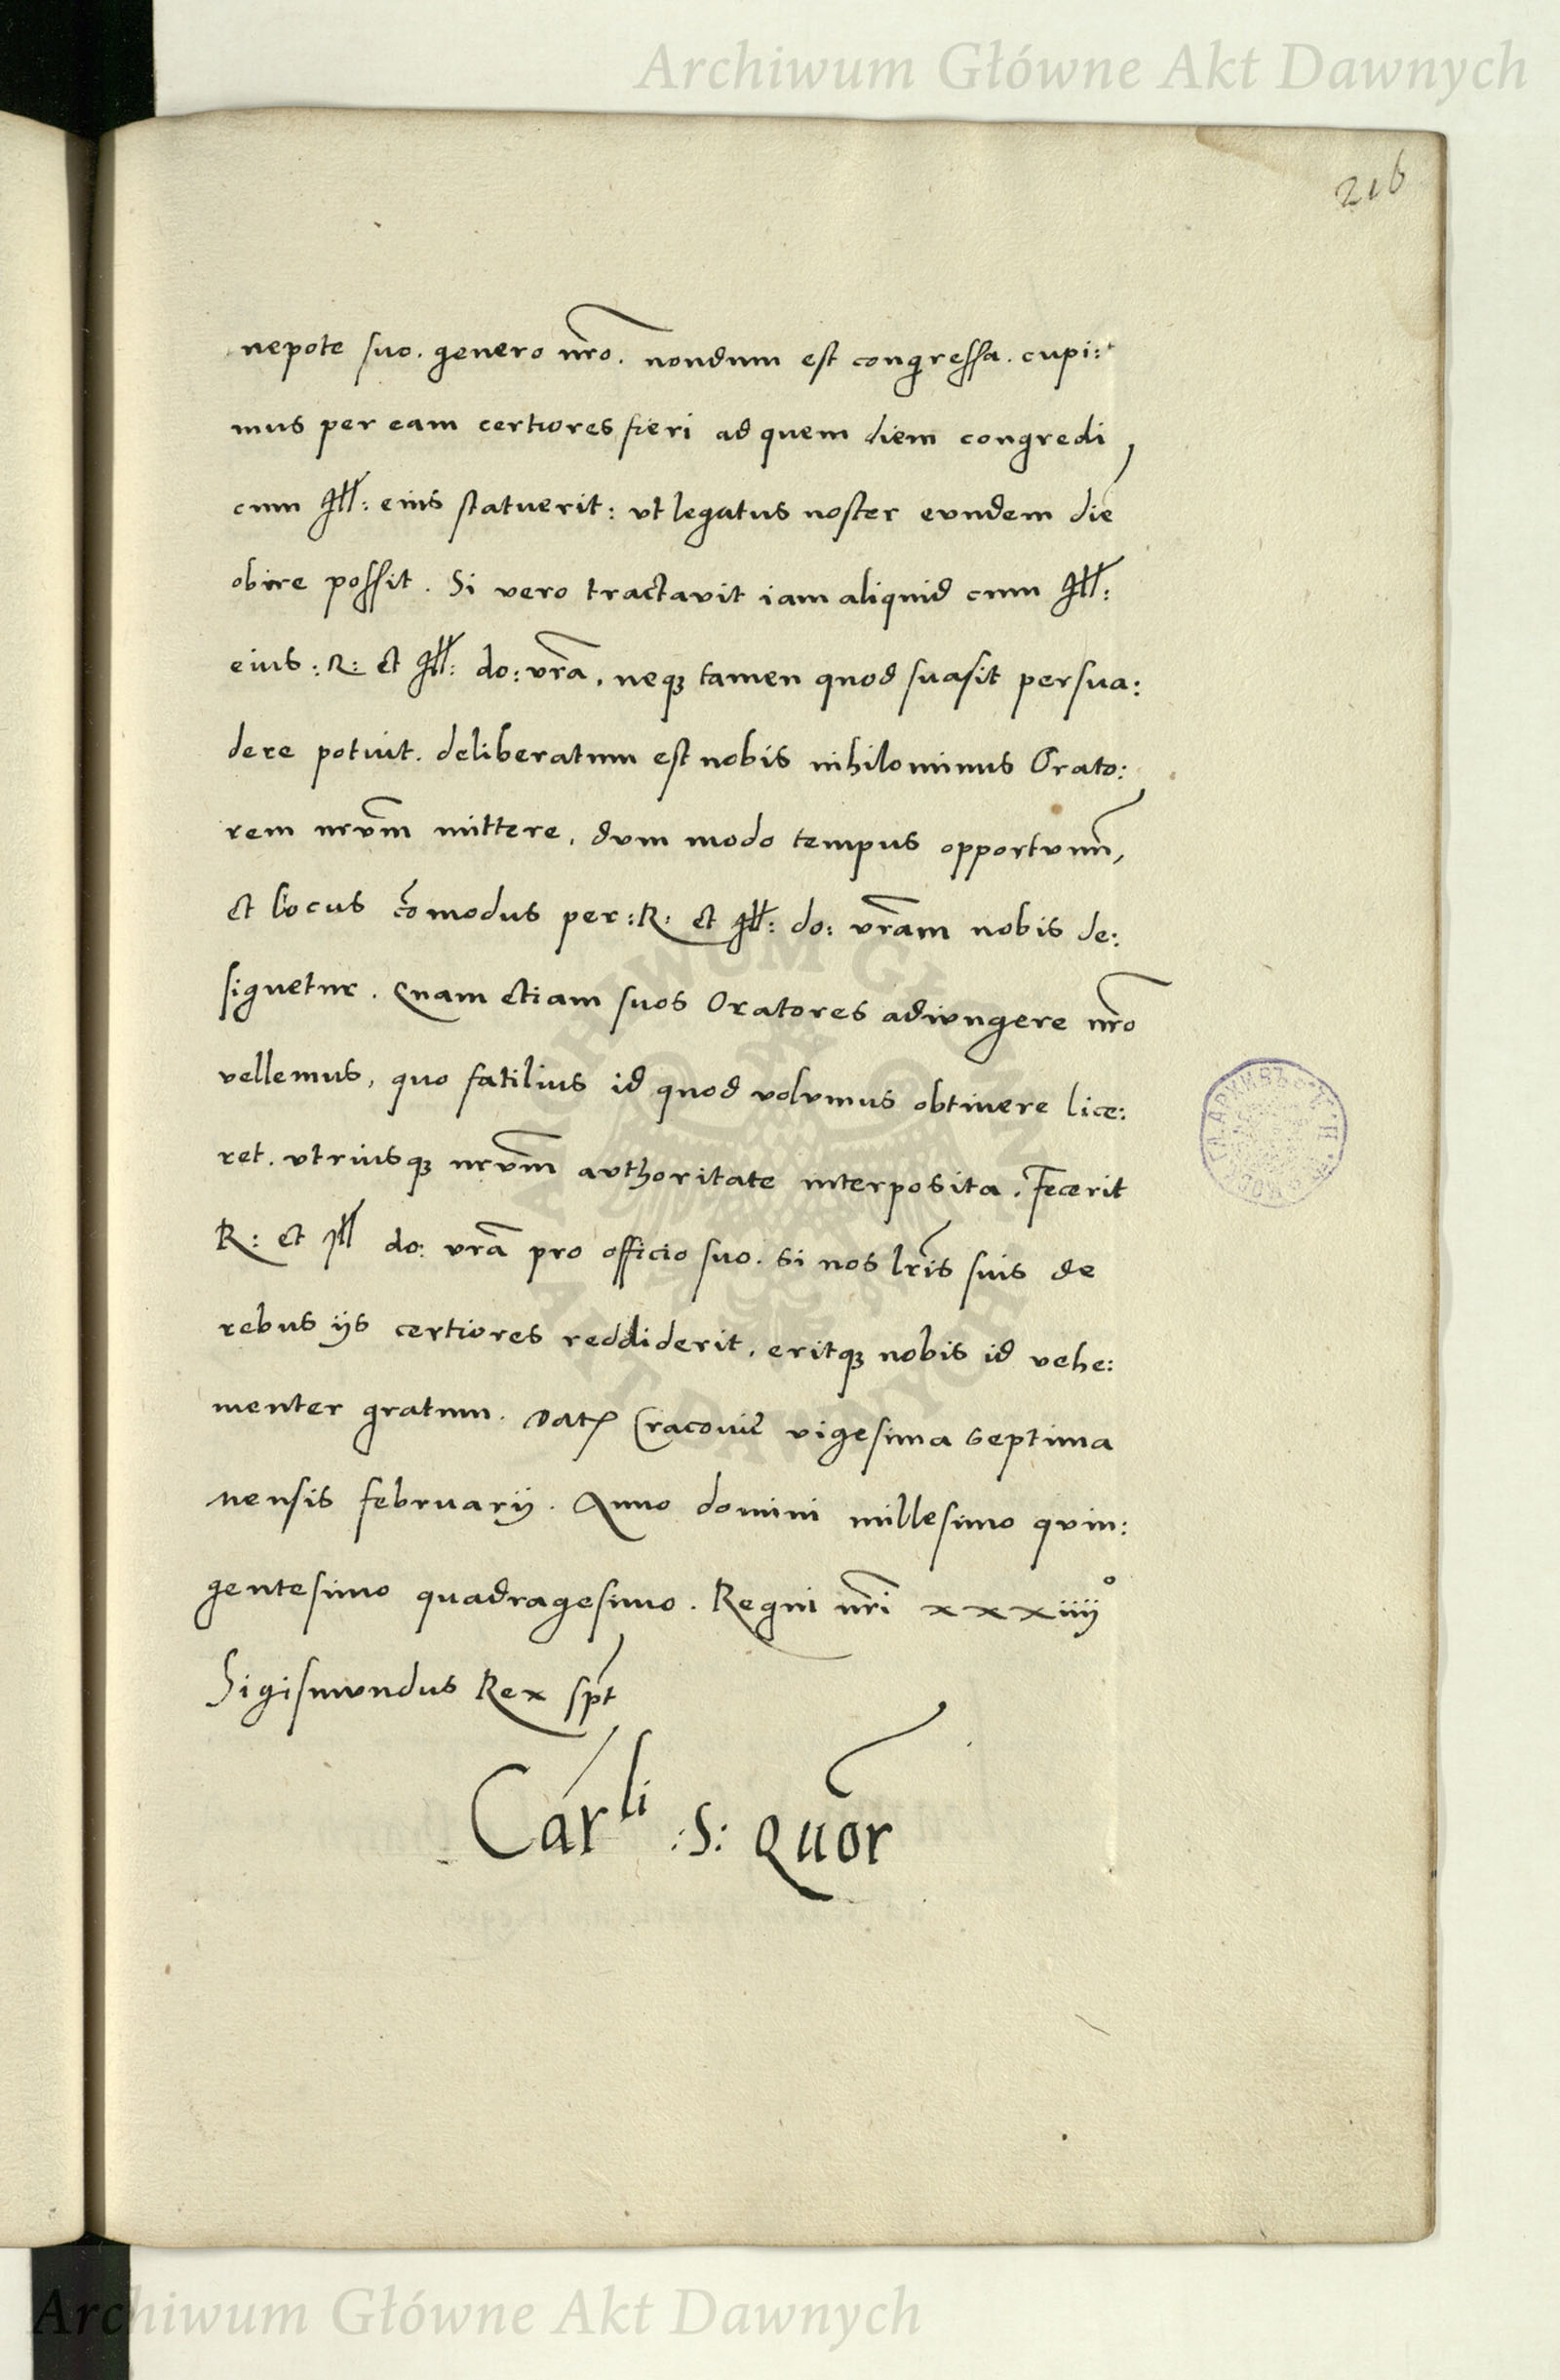 Archiwum Główne Akt Dawnych
216
nepote suo. genero nr̃o. nondum est congressa. cupi:
mus per eam certiores fieri ad quem diem congredi
cum Ill: eius statuerit: ut legatus noster eundem diē
obire possit. Si vero tractavit iam aliquid cum Ill:
eius: R: et Ill: do: vr̃a, neqꝫ tamen quod suasit persua:
dere potuit. deliberatum est nobis nihilominus Orato:
rem nrũm mittere, dum modo tempus opportunũ,
et locus cõmodus per: R: et Ill: do: vrãm nobis de:
signetur. Quam etiam suos Oratores adiungere nr̃o
vellemus, quo fatilius id quod volumus obtinere lice:
ret. utriusqꝫ nrũm authoritate interposita. Fecerit
R: et Ill do: vrã pro officio suo. si nos lr̃is suis de
rebus ijs certiores reddiderit, eritqꝫ nobis id vehe:
menter gratum. Datꝭ Cracoviȩ vigesima septima
mensis februarij. Anno domini millesimo quin:
gentesimo quadragesimo. Regni nr̃i xxxiiij°
Sigismundus Rex spt̃
Carli :S: Quor
Archiwum Główne Akt Dawnych